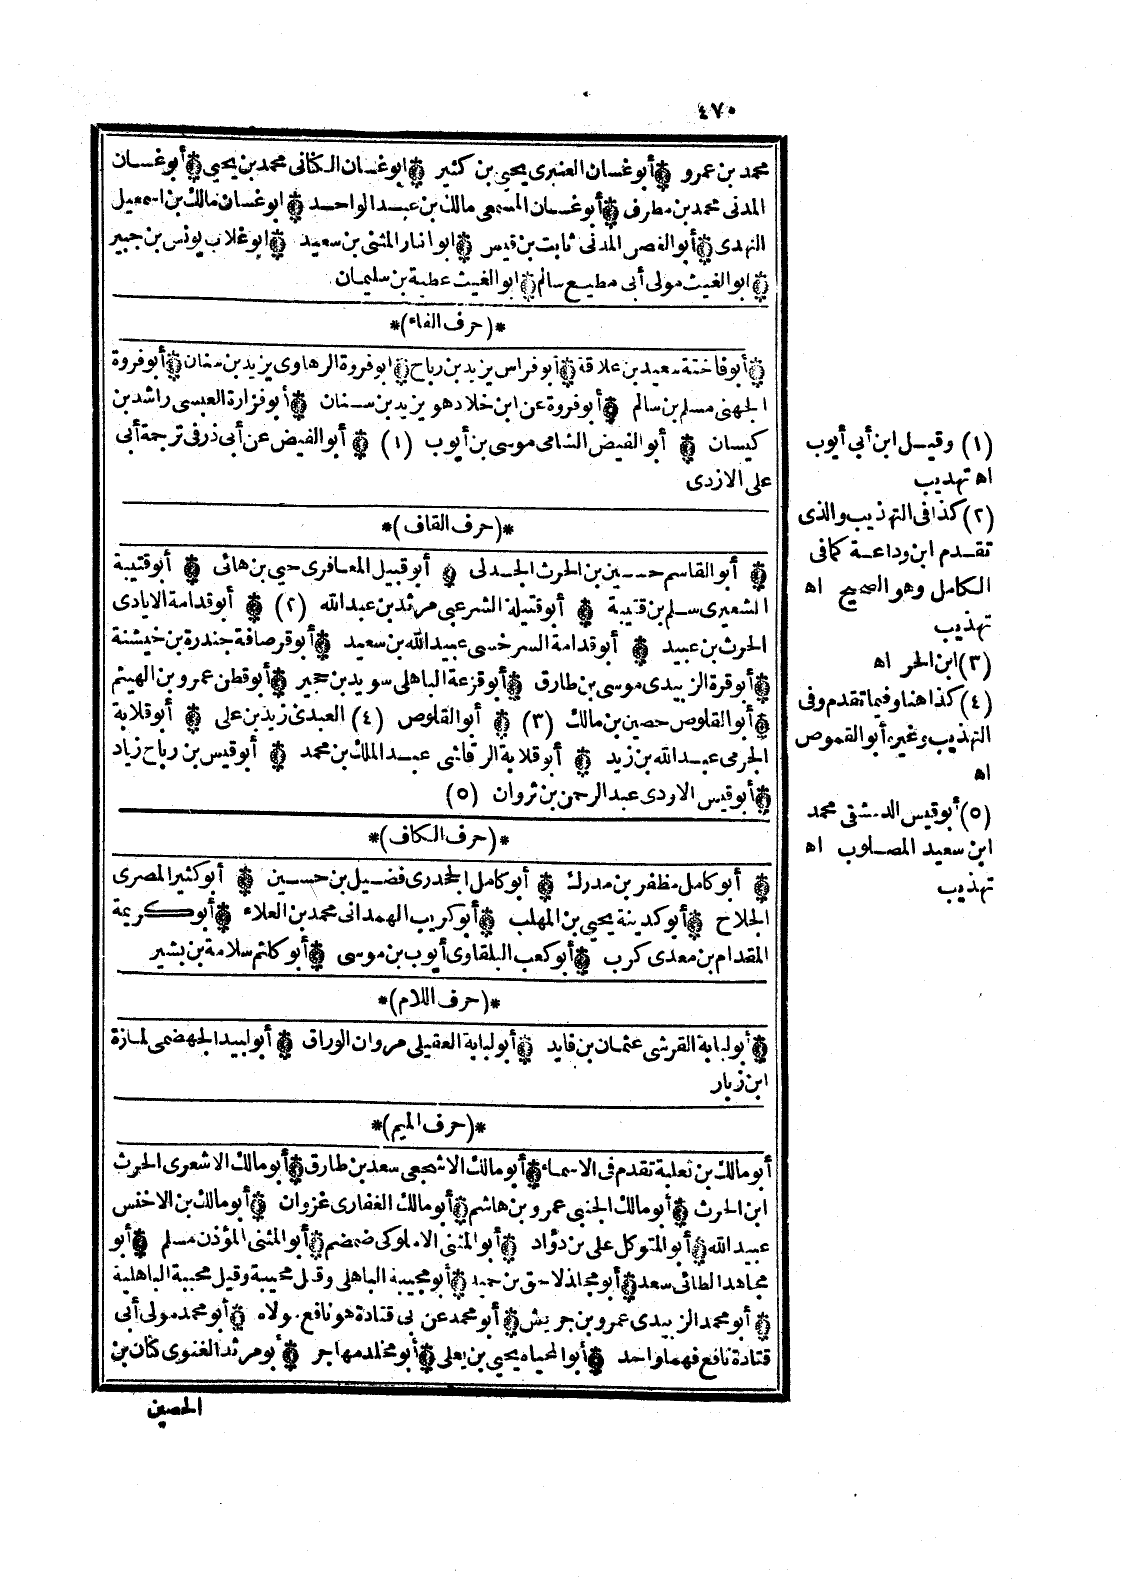 ٤٧٠
محمد بن عمرو ۞ أبو غسان العنبرى يحيى بن كثير ۞ ابو غسان الكنانى محمد بن يحيى ۞ أبو غسان
المدنى محمد بن مطرف ۞ أبو غسان المسمعى مالك بن عبد الواحد ۞ ابو غسان مالك بن اسمعيل
النهدى ۞ أبو الغصن المدنى ثابت بن قيس ۞ ابو انار المثنى بن سعيد ۞ ابو غلاب يونس بن جبير
۞ ابو الغيث مولى أبى مطيع سالم ۞ ابو الغيث عطية بن سليمان
*(حرف الفاء)*
۞ أبو فاختة سعيد بن علاقة ۞ أبو فراس يزيد بن رباح ۞ ابو فروة الرهاوى يزيد بن سنان ۞ أبو فروة
الجهنى مسلم بن سالم ۞ أبو فروة عن ابن خلاد هو يزيد بن سنان ۞ أبو فزارة العبسى راشد بن
كيسان ۞ أبو الفيض الشامى موسى بن أيوب (١) ۞ أبو الفيض عن أبى ذر فى ترجمة أبى
على الازدى
*(حرف القاف)*
۞ أبو القاسم حسين بن الحرث الجدلى ۞ أبو قبيل المعافرى حيى بن هانى ۞ أبو قتيبة
الشعيرى سلم بن قتيبة ۞ أبو قتيلة الشرعبى مرثد بن عبد الله (٢) ۞ أبو قدامة الايادى
الحرث بن عبيد ۞ أبو قدامة السرخسى عبيد الله بن سعيد ۞ أبو قرصافة جندرة بن خيشنة
۞ أبو قرة الزبيدى موسى بن طارق ۞ أبو قزعة الباهلى سويد بن حجير ۞ أبو قطن عمرو بن الهيثم
۞ أبو القلوص حصين بن مالك (٣) ۞ أبو القلوص (٤) العبدى زيد بن على ۞ أبو قلابة
الجرمى عبد الله بن زيد ۞ أبو قلابة الرقاشى عبد الملك بن محمد ۞ أبو قيس بن رباح زياد
۞ أبو قيس الاودى عبد الرحمن بن ثروان (٥)
*(حرف الكاف)*
۞ أبو كامل مظفر بن مدرك ۞ أبو كامل الجحدرى فضيل بن حسين ۞ أبو كثير المصرى
الجلاح ۞ أبو كدينة يحيى بن المهلب ۞ أبو كريب الهمدانى محمد بن العلاء ۞ أبو كريمة
المقدام بن معدى كرب ۞ أبو كعب البلقاوى أيوب بن موسى ۞ أبو كلثم سلامة بن بشير
*(حرف اللام)*
۞ أبو لبابة القرشى عثمان بن فايد ۞ أبو لبابة العقيلى مروان الوراق ۞ أبو لبيد الجهضمى لمازة
ابن زبار
*(حرف الميم)*
أبو مالك بن ثعلبة تقدم فى الاسماء ۞ أبو مالك الاشجعى سعد بن طارق ۞ أبو مالك الاشعرى الحرث
ابن الحرث ۞ أبو مالك الجنبى عمرو بن هاشم ۞ أبو مالك الغفارى غزوان ۞ أبو مالك بن الاخنس
عبيد الله ۞ أبو المتوكل على بن دؤاد ۞ أبو المثنى الاملوكى ضمضم ۞ أبو المثنى المؤذن مسلم ۞ أبو
مجاهد الطائى سعد ۞ أبو مجلز لاحق بن حميد ۞ أبو مجيبة الباهلى وقيل مجيبة وقيل مجيبة الباهلية
۞ أبو محمد الزبيدى عمرو بن حريش ۞ أبو محمد عن أبى قتادة هو نافع مولاه ۞ أبو محمد مولى أبى
قتادة نافع فهما واحد ۞ أبو المحياه يحيى بن يعلى ۞ أبو مخلد مهاجر ۞ أبو مرثد الغنوى كان بن
الحصين
(١) وقيل ابن أبى أيوب
اه تهذيب
(٢) كذا فى التهذيب والذى
تقدم ابن وداعة كما فى
الكامل وهو الصحيح اه
تهذيب
(٣) ابن الحر اه
(٤) كذا هنا وفيما تقدم وفى
التهذيب وغيره أبو القموص
اه
(٥) أبو قيس الدمشقى محمد
ابن سعيد المصلوب اه
تهذيب